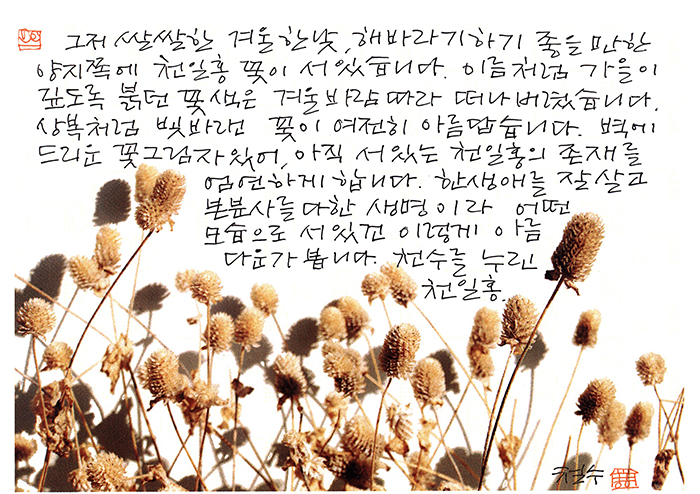 그저 쌀쌀한 겨울한낮, 해바라기하기 좋을 만한
양지쪽에 천일홍 꽃이 서있습니다. 이름처럼 가을이
깊도록 붉던 꽃색은 겨울바람따라 떠나버렸습니다.
상복처럼 빛바랜 꽃이 여전히 아름답습니다. 벽에
드리운 꽃그림자있어, 아직 서있는 천일홍의 존재를
엄연하게 합니다. 한생애를 잘살고
본분사를 다한 생명이라 어떤
모습으로 서있건 이렇게 아름
다운가 봅니다. 천수를 누린
천일홍.
철수